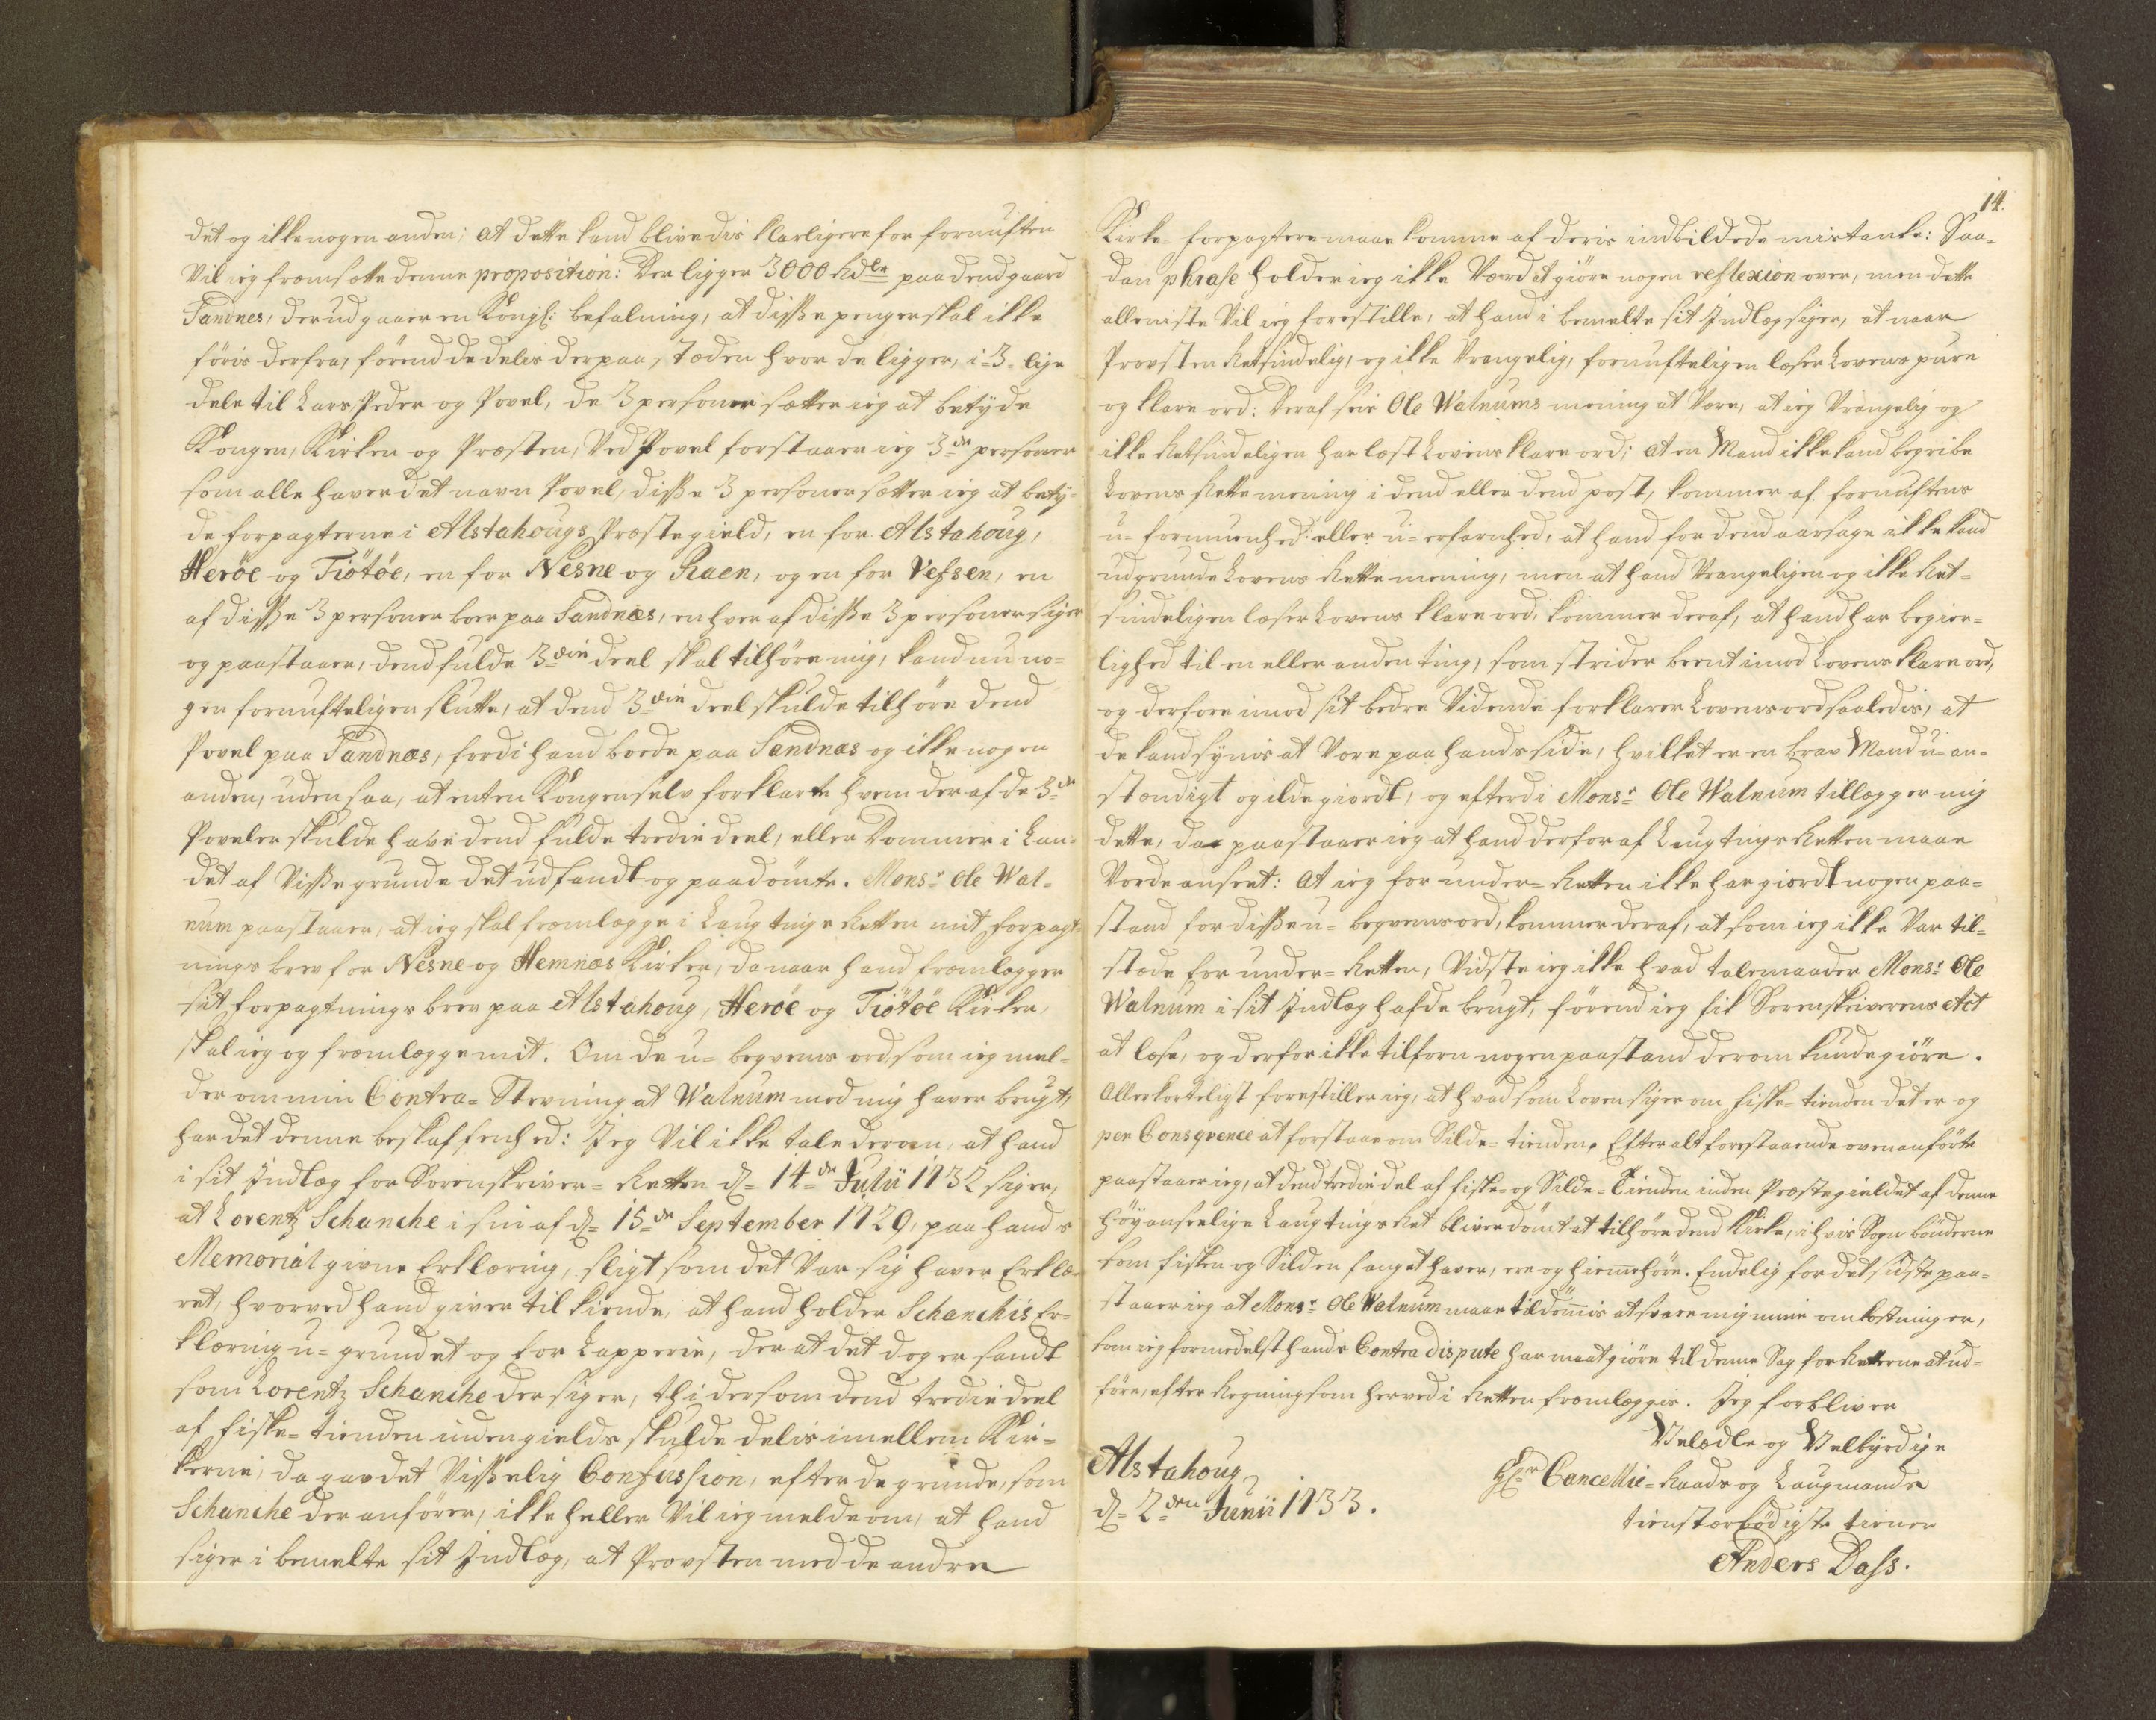 det og ikke nogen anden; at dette kand blive dis klarligere for fornuften
Vil ieg fremsætte denne proposition: Der ligger 3000 Rdlr paa dend gaard
Sandnes, der udgaaer en Kongl: befalning, at disse penger skal ikke
föris derfra, förend de delis derpaa, stæden hvor de ligger, i 3 lige
dele til Lars Peder og Povel, de 3 personer sætter ieg at betyde
Kongen, Kirken og Præsten, Ved Povel forstaaer ieg 3de personer
som alle haver det navn Povel, disse 3 personer sætter ieg at bety-
de forpagterne i Alstahougs Præstegield, en for Alstahoug,
Heröe og Tiötöe, en for Nesne og Raen, og en for Vefsen, en
af disse 3 personer boer paa Sandnæs, en hver af disse 3 personer siger
og paastaaer, dend fulde 3die deel skal tilhöre mig, kand nu no-
gen fornufteligen slutte, at dend 3die deel skulde tilhöre dend
Povel paa Sandnæs, fordi hand boede paa Sandnæs og ikke nogen
anden, uden saa, at enten Kongen selv forklarte hvem der af de 3de
Poveler skulde have dend fulde tredie deel, eller Dommer i Lan-
det af Visse grunde det udfandt og paadömte. Monsr Ole Wal-
num paastaaer, at ieg skal fremlægge i Laugtings Retten mit forpagt-
nings brev for Nesne og Hemnæs Kirker, da naar hand fremlægger
sit forpagtnings brev paa Alstahoug, Heröe og Tiötöe Kirker,
skal ieg og fremlægge mit. Om de u-beqvems ord som ieg mel-
der om min Contra-Stevning at Walnum mod mig haver brugt,
har det denne beskaffenhed: Jeg Vil ikke tale derom, at hand
i sit Indlæg for Sorenskriver-Retten d. 14de Julii 1732 siger,
at Lorentz Schanche i sin af d. 15de September 1729, paa hands
Memorial givne Erklæring, sligt som det Var sig haver Erklæ-
ret, hvorved hand giver tilkiende, at hand holder Schanchis Er-
klæring u-grundet og for Lapperie, der at det dog er sandt
som Lorentz Schanche der siger, thi dersom dend tredie deel
af fiske-tienden indengields skulde delis imellem Kir-
kerne, da gav det Visselig Confussion, efter de grunde, som
Schanche der anförer, ikke heller Vil ieg melde om, at hand
siger i bemelte sit Indlæg, at Provsten med de andre
14.
Kirke-forpagtere maae komme af deris indbildede mistanke: Saa-
dan phrase holder ieg ikke Værd at giöre nogen reflexion over, men dette
alleniste Vil ieg forestille, at hand i bemelte sit Indlæg siger, at naar
Provsten Retsindelig, og ikke Vrangelig, fornufteligen læser Lovens pure
og klare ord: Deraf seis Ole Walnums mening at Være, at ieg Vrangelig og
ikke Retsindeligen har læst Lovens klare ord; at en Mand ikke kand begribe
Lovens Rette mening i dend eller dend post, kommer af fornuftens
u-formuenhed: eller u-erfarnhed, at hand for dend aarsage ikke kand
udgrunde Lovens Rette mening, men at hand Vrangeligen og ikke Ret-
sindeligen læser Lovens klare ord, kommer deraf, at hand har begier-
lighed til en eller anden ting, som strider beent imod Lovens klare ord,
og derfore imod sit bedre Vidende forklarer Lovens ord saaledis, at
de kand synis at Være paa hands side, hvilket er en brav Mand u-an-
stændigt og ilde giordt, og efterdi Monsr Ole Walnum tillægger mig
dette, da paastaaer ieg at hand derfor af Laugtings Retten maae
Vorde anseet: at ieg for under-Retten ikke har giordt nogen paa-
stand for disse u-beqvems ord, kommer deraf, at som ieg ikke Var til-
stæde for under-Retten, Vidste ieg ikke hvad talemaader Monsr Ole
Walnum i sit Indlæg hafde brugt, förend ieg fik Sorenskriverens Act
at læse, og derfor ikke tilforn nogen paastand derom kunde giöre.
Allerkorteligst forestiller ieg, at hvad som Loven siger om fiske-tienden det er og
per Consqvence at forstaae om Silde-tienden. Efter alt forestaaende ovenanförte
paastaaer ieg, at dend tredie del af fiske- og Silde-Tienden inden Præstegieldet af denne
höyanseelige Laugtings Ret bliver dömt at tilhöre dend Kirke, i hvis Sogn bönderne
som fisken og Silden fanget haver, ere og hiemmehöre. Endelig for det sidste paa-
staaer ieg at Monsr Ole Walnum maae tildömmis at svare mig mine omkostninger,
som ieg formedelst hands Contra dispute har maat giöre til denne Sag for Retterne at ud-
före, efter Regning som herved i Retten fremlæggis. Jeg forbliver
Velædle og Velbyrdige
Hr Cancellie-Raads og Laugmands
tienstærbödigste tiener
Anders Dass.
Alstahoug
d. 2den Junii 1733.